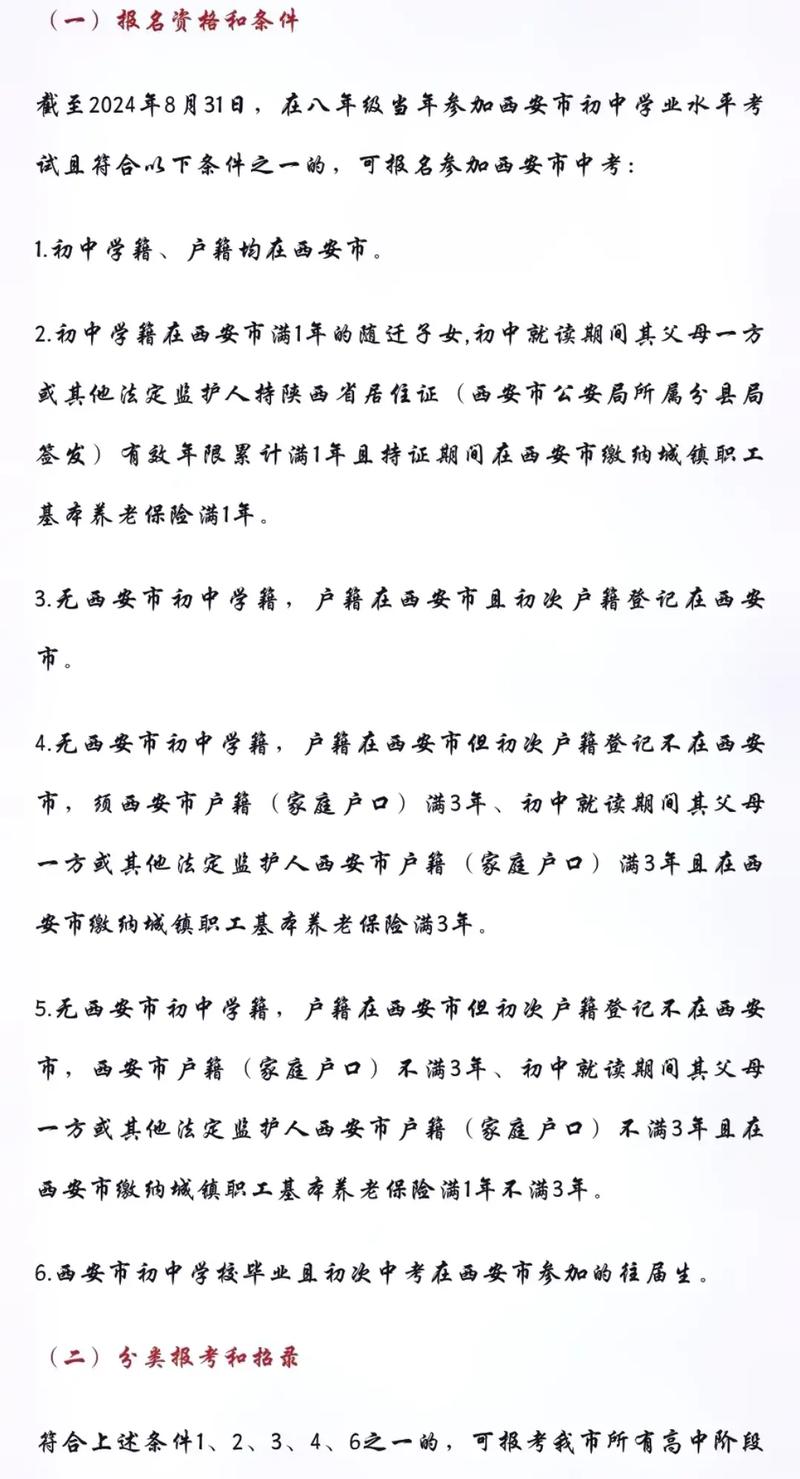 （一）报名资格和条件
截至2024年8月31日，在八年级当年参加西安市初中学业水平考
试且符合以下条件之一的，可报名参加西安市中考：
1.初中学籍、户籍均在西安市。
2.初中学籍在西安市满1年的随迁子女,初中就读期间其父母一方
或其他法定监护人持陕西省居住证（西安市公安局所属分县局
签发）有效年限累计满1年且持证期间在西安市缴纳城镇职工
基本养老保险满1年。
3.无西安市初中学籍，户籍在西安市且初次户籍登记在西安
市。
4.无西安市初中学籍，户籍在西安市但初次户籍登记不在西安
市，须西安市户籍（家庭户口）满3年、初中就读期间其父母
一方或其他法定监护人西安市户籍（家庭户口）满3年且在西
安市缴纳城镇职工基本养老保险满3年。
5.无西安市初中学籍，户籍在西安市但初次户籍登记不在西安
市，西安市户籍（家庭户口）不满3年、初中就读期间其父母
一方或其他法定监护人西安市户籍（家庭户口）不满3年且在
西安市缴纳城镇职工基本养老保险满1年不满3年。
6.西安市初中学校毕业且初次中考在西安市参加的往届生。
（二）分类报考和招录
符合上述条件1、2、3、4、6之一的，可报考我市所有高中阶段